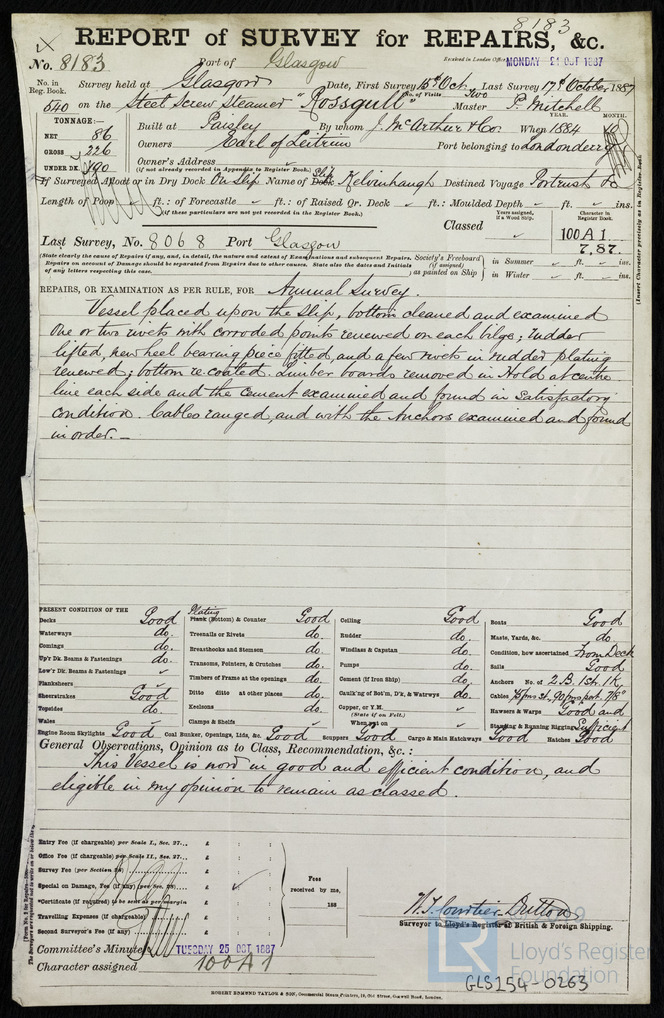 8183
REPORT of SURVEY for REPAIRS, &c.
No. 8183 Port of Glasgow Received in London Office MONDAY 24 OCT 1887
No. in Reg. Book. Survey held at Glasgow Date, First Survey 15th Oct. Last Survey 17th October 1887
No. of Visits Two
540 on the Steel Screw Steamer "Rossgull" Master P. Mitchell
TONNAGE:—
NET 86
GROSS 226
UNDER DK. 190
Built at Paisley By whom J. McArthur & Co. When 1884
YEAR. MONTH.
Owners Earl of Leitrim Port belonging to Londonderry
Owner's Address
(if not already recorded in Appendix to Register Book.)
If Surveyed Afloat or in Dry Dock On Slip Name of Slip Dock Kelvinhaugh Destined Voyage Portrush &c
Length of Poop ft.: of Forecastle ft.: of Raised Qr. Deck ft.: Moulded Depth ft. ins.
(if these particulars are not yet recorded in the Register Book.)
Last Survey, No. 8068 Port Glasgow
Classed
Years assigned, if a Wood Ship.
Character in Register Book.
100 A 1
7.87.
(State clearly the cause of Repairs, if any, and, in detail, the nature and extent of Examinations and subsequent Repairs.
Repairs on account of Damage should be separated from Repairs due to other causes. State also the dates and Initials
of any letters respecting this case.
Society's Freeboard (if assigned) as painted on Ship
in Summer ft. ins.
in Winter ft. ins.
(Insert Character precisely as in Register Book.)
REPAIRS, OR EXAMINATION AS PER RULE, FOR Annual Survey.
Vessel placed upon the Slip, bottom cleaned and examined
One or two rivets with corroded points renewed on each bilge; rudder
lifted, new heel bearing piece fitted, and a few rivets in rudder plating
renewed; bottom re-coated. Limber boards removed in Hold at centre
line each side and the cement examined and found in satisfactory
condition. Cables ranged, and with the Anchors examined and found
in order.—
PRESENT CONDITION OF THE
Decks Good
Waterways do.
Comings do.
Up'r Dk. Beams & Fastenings do.
Low'r Dk. Beams & Fastenings
Planksheers
Sheerstrakes Good
Topsides do.
Wales
Engine Room Skylights Good
Plating
Plank (Bottom) & Counter Good
Treenails or Rivets do.
Breasthooks and Stemson do.
Transoms, Pointers, & Crutches do.
Timbers of Frame at the openings do.
Ditto ditto at other places do.
Keelsons do.
Clamps & Shelfs
Coal Bunker, Openings, Lids, &c. Good
Ceiling Good
Rudder do.
Windlass & Capstan do.
Pumps do.
Cement (if Iron Ship) do.
Caulk'ng of Bot'm, D'k, & Watrwys do.
Copper, or Y.M.
(State if on Felt.)
When put on
Scuppers Good Cargo & Main Hatchways Good
Boats Good
Masts, Yards, &c. do
Condition, how ascertained From Deck
Sails Good
Anchors No. of 2.B. 1 St. 1 K.
Hawsers & Warps Good and
Standing & Running Rigging Sufficient
Hatches Good
General Observations, Opinion as to Class, Recommendation, &c.:
This Vessel is now in good and efficient condition, and
eligible in my opinion to remain as classed.
Entry Fee (if chargeable) per Scale I., Sec. 27... £
Office Fee (if chargeable) per Scale II., Sec. 27... £
Survey Fee (per Section 28) £
Special on Damage, Fee (if any) (per Sec. 28) £
Certificate (if required) to be sent as per margin £
Travelling Expenses (if chargeable) £
Second Surveyor's Fee (if any) £
Fees received by me, 188
Surveyor to Lloyd's Register of British & Foreign Shipping.
Committee's Minute TUESDAY 25 OCT 1887
Character assigned 100 A 1
Lloyd's Register
Foundation
GLS154-0263
ROBERT EDMUND TAYLOR & SON, Commercial Steam Printers, 19, Old Street, Goswell Road, London.